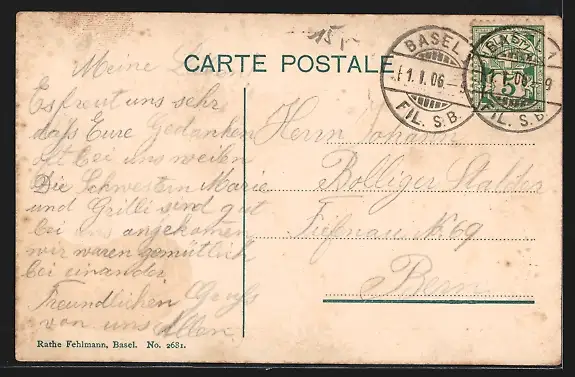 CARTE POSTALE
15
BASEL
1. I. 06
FIL. S.B.
BASEL
1. I. 06
FIL. S.B.
5
Meine
Es freut uns sehr
daß Eure Gedanken
oft bei uns weilen
Die Schwestern Marie
und sind gut
bei uns angekommen
wir waren gemütlich
bei einander
Freundlichen Gruß
von uns Allen
Herrn Johann
Bolliger Stalder
Tiefnau No 69
Bern
Rathe Fehlmann, Basel. No. 2681.